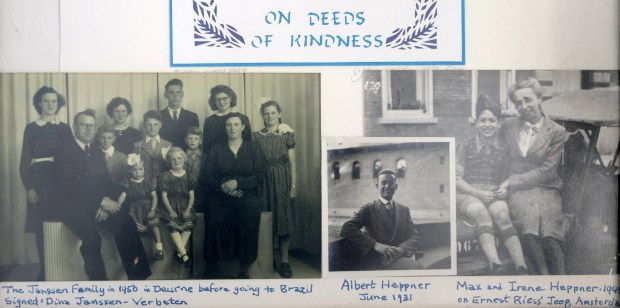 ON DEEDS
OF KINDNESS
The Janssen Family in 1950 in Deurne before going to Brazil
Signed: Dina Janssen-Verbeten
Albert Heppner
June 1931
Max and Irene Heppner-194
on Ernest Riess' Jeep, Amsterda